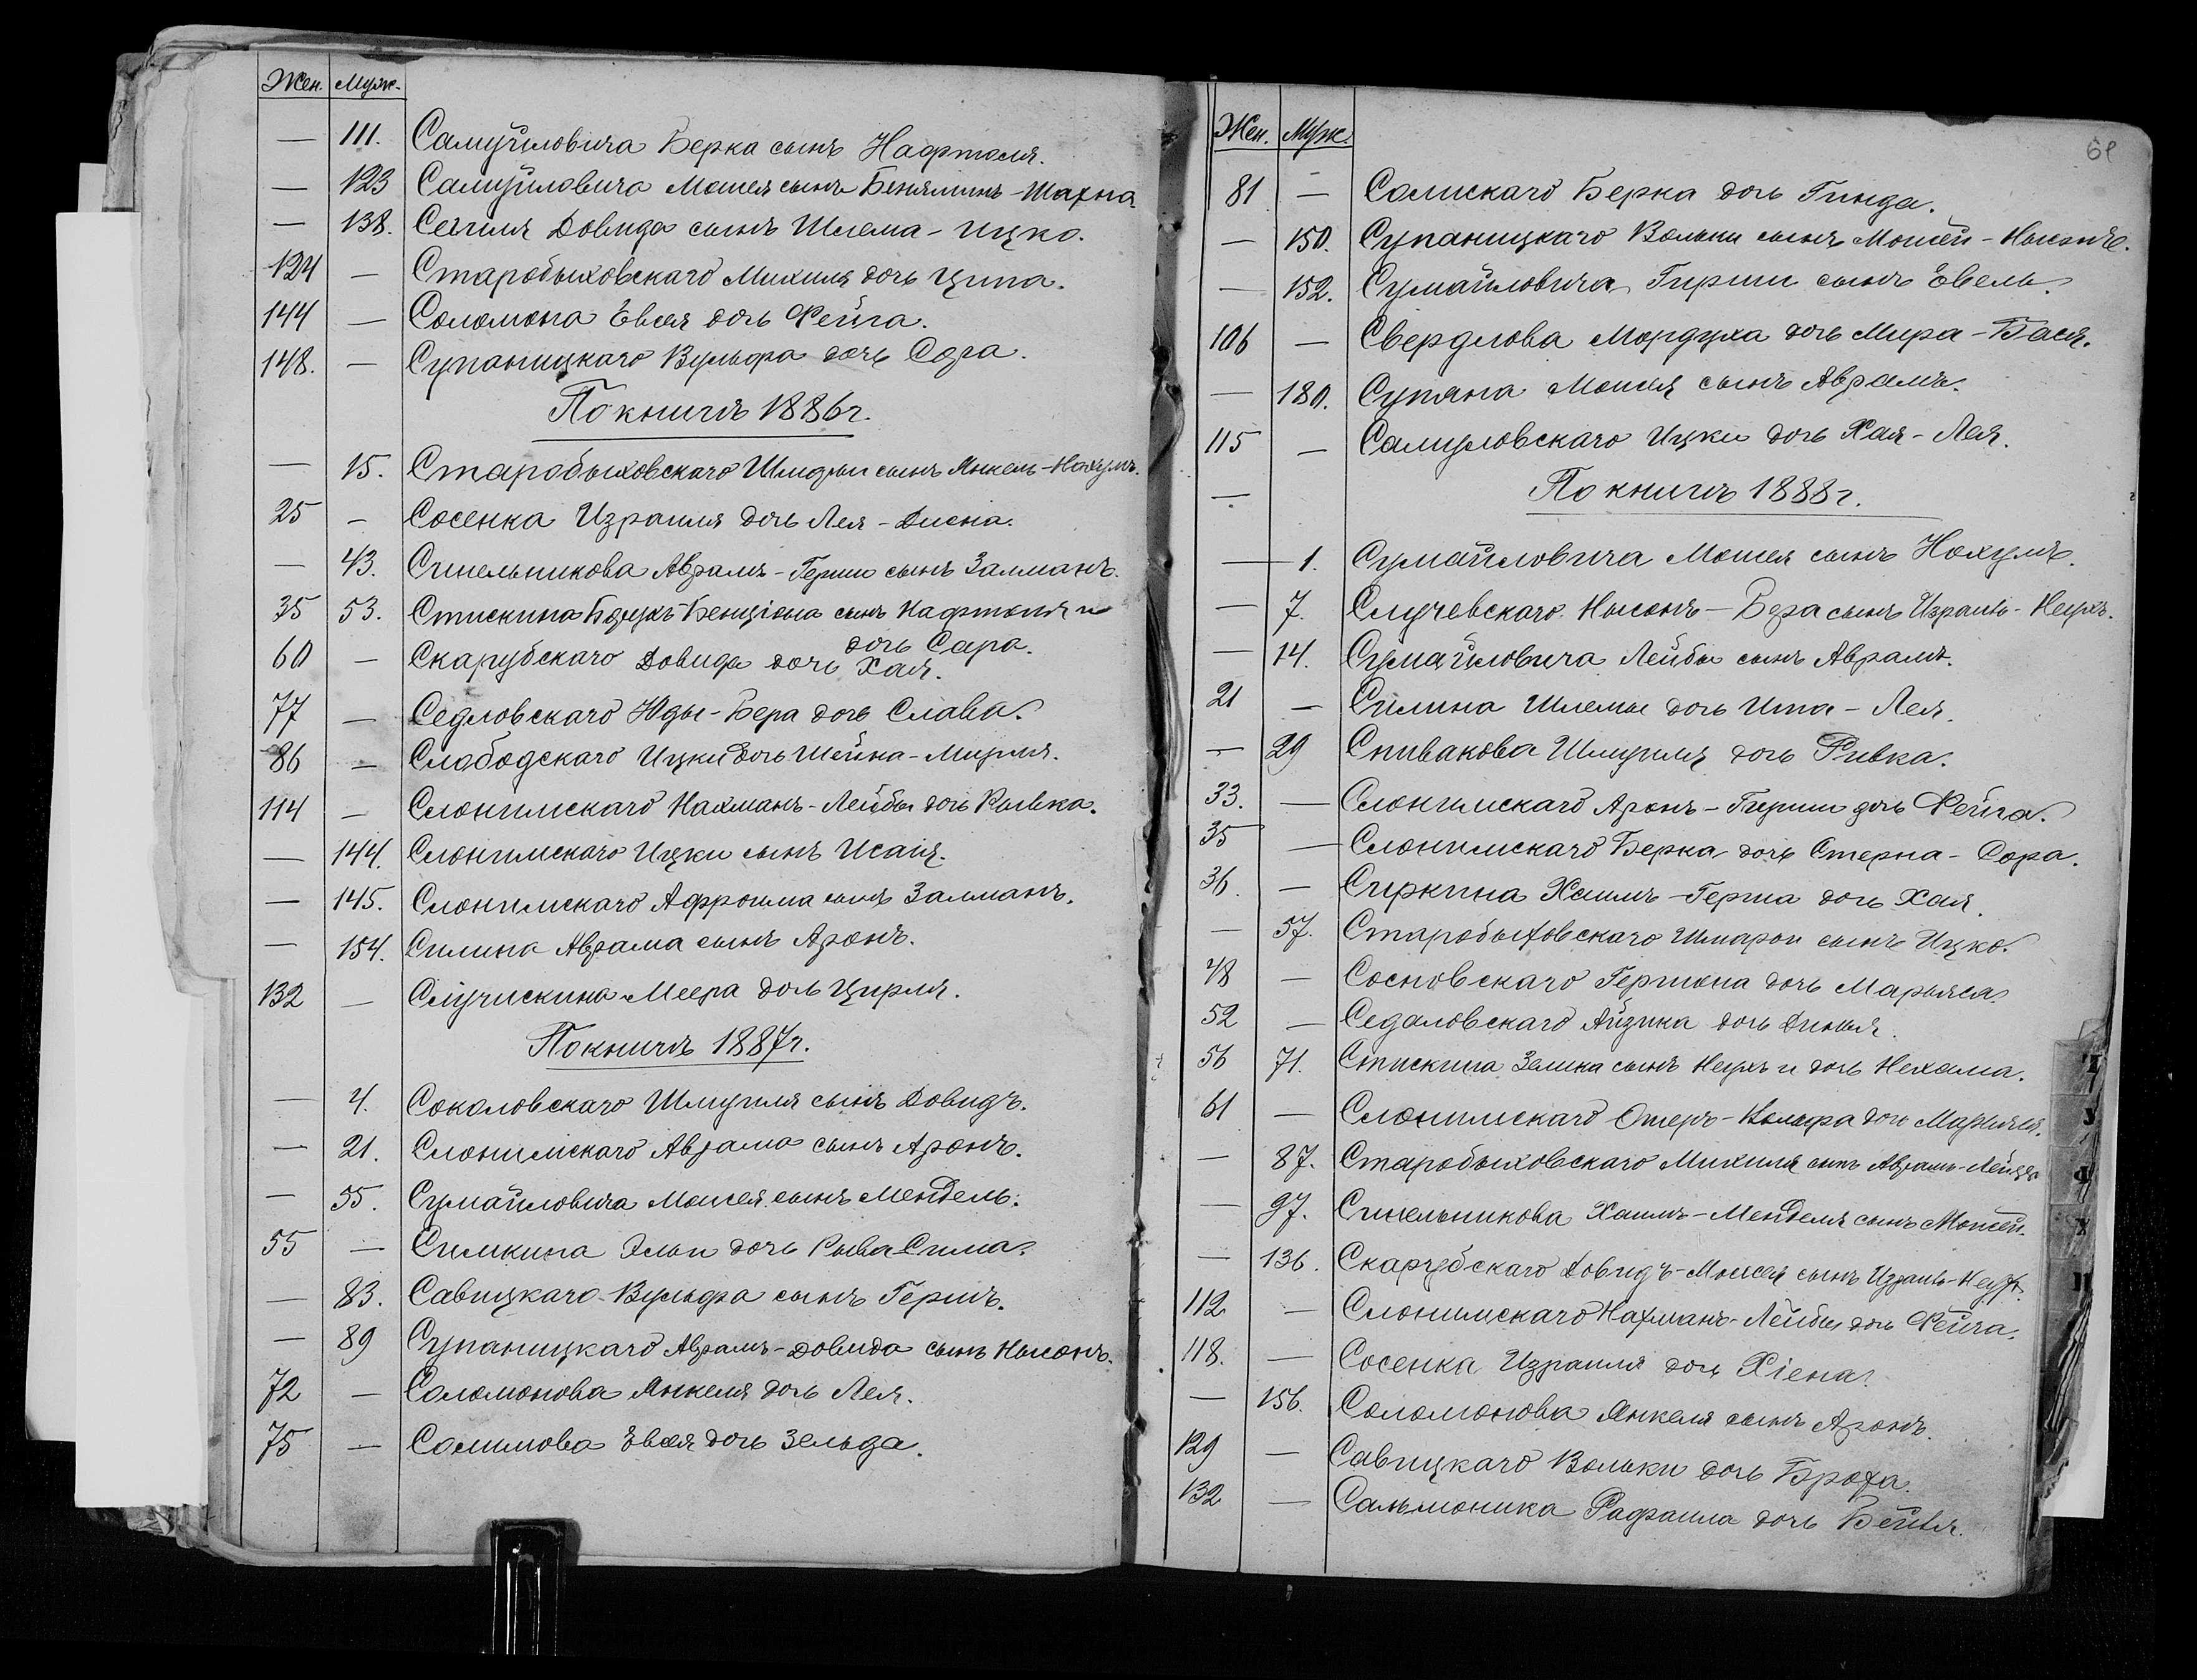 Жен. Муж.
— 111. Самуйловича Берка сынъ Нафтоля.
— 123 Самуйловича Мошея сынъ Бенямин-Шахна
— 138. Сегиля Довида сынъ Шлема-Ицко.
124 — Старобыховскаго Михиля дочь Ципа.
144 — Соломона Евсея дочь Фейга.
148. — Супаницкаго Вульфа дочь Сора.
По книгѣ 1886 г.
— 15. Старобыховскаго сынъ Янкель-Нахумъ.
25 — Сосенка Израиля дочь Лея-Диена.
— 43. Синельникова Аврамъ-Герши сынъ Залманъ.
35 53. Стискина Бенціона сынъ Нафтоля и дочь Сара.
60 — Скарубскаго Довида дочь Хая.
77 — Седловскаго Юды-Бера дочь Слава.
86 — Слободскаго Ицки дочь Шейна-Мирля.
114 — Слонимскаго Нахманъ-Лейбы дочь Рывка.
— 144. Слонимскаго Ицки сынъ Исаія.
— 145. Слонимскаго Афроима сынъ Залманъ.
— 154. Силина Аврама сынъ Аронъ.
132 — Случискина Меера дочь Цирля.
По книгѣ 1887 г.
— 4. Соколовскаго Шмуиля сынъ Довидъ.
— 21. Слонимскаго Аврама сынъ Аронъ.
— 35. Сумайловича Мошея сынъ Мендель.
55 — Симкина Эльи дочь Рыва Сима.
— 83. Савицкаго Вульфа сынъ Гершъ.
— 89 Супаницкаго Аврамъ-Довида сынъ Нысонъ.
72 — Соломонова Янкеля дочь Лея.
75 — Солимова Евсея дочь Зельда.
Жен. Муж.
61
81 — Солискаго Берка дочь Гинда.
— 150. Супаницкаго Вольки сынъ Мошей-Нысонъ.
— 152. Сумайловича Гирши сынъ Евель.
106 — Свердлова Мордуха дочь Мира-Бася.
— 180. Супяна Мошея сынъ Аврамъ.
115 — Самуловскаго Ицки дочь Хая-Лея.
— По книгѣ 1888 г.
— 1. Сумайловича Мошея сынъ Нохумъ.
— 7. Случевскаго Нысонъ-Бера сынъ Израиль-Неухъ.
— 14. Сумайловича Лейбы сынъ Аврамъ.
21 — Силина Шлемы дочь Ита-Лея.
— 29 Спивакова Шмуиля дочь Ривка.
33. — Слонимскаго Аронъ-Гирши дочь Фейга.
35 — Слонимскаго Берка дочь Стерна-Сора.
36. — Сиркина Хаимъ-Герша дочь Хая.
— 57. Старобыховскаго сынъ Ицко.
48 — Сосновскаго Гершона дочь Марьяся.
52 — Седаловскаго Айзика дочь
56 71. Стискина Зелика сынъ Неухъ и дочь Нехама.
61 — Слонимскаго Ошеръ-Вольфа дочь Марьяся.
— 87. Старобыховскаго Михиля сынъ Аврамъ-Лейзеръ
— 97. Синельникова Хаимъ-Менделя сынъ Мошей.
— 136. Скарубскаго Довидъ-Мошея сынъ Израиль-Неухъ.
112 — Слонимскаго Нахманъ-Лейбы дочь Фейга.
118. — Сосенка Израиля дочь Хіена.
— 156. Соломонова Янкеля сынъ Аронъ.
129 — Савицкаго Вольки дочь Броха.
132 — Сальмоника Рафаила дочь Бейля.
У
Ф
Х
Ц